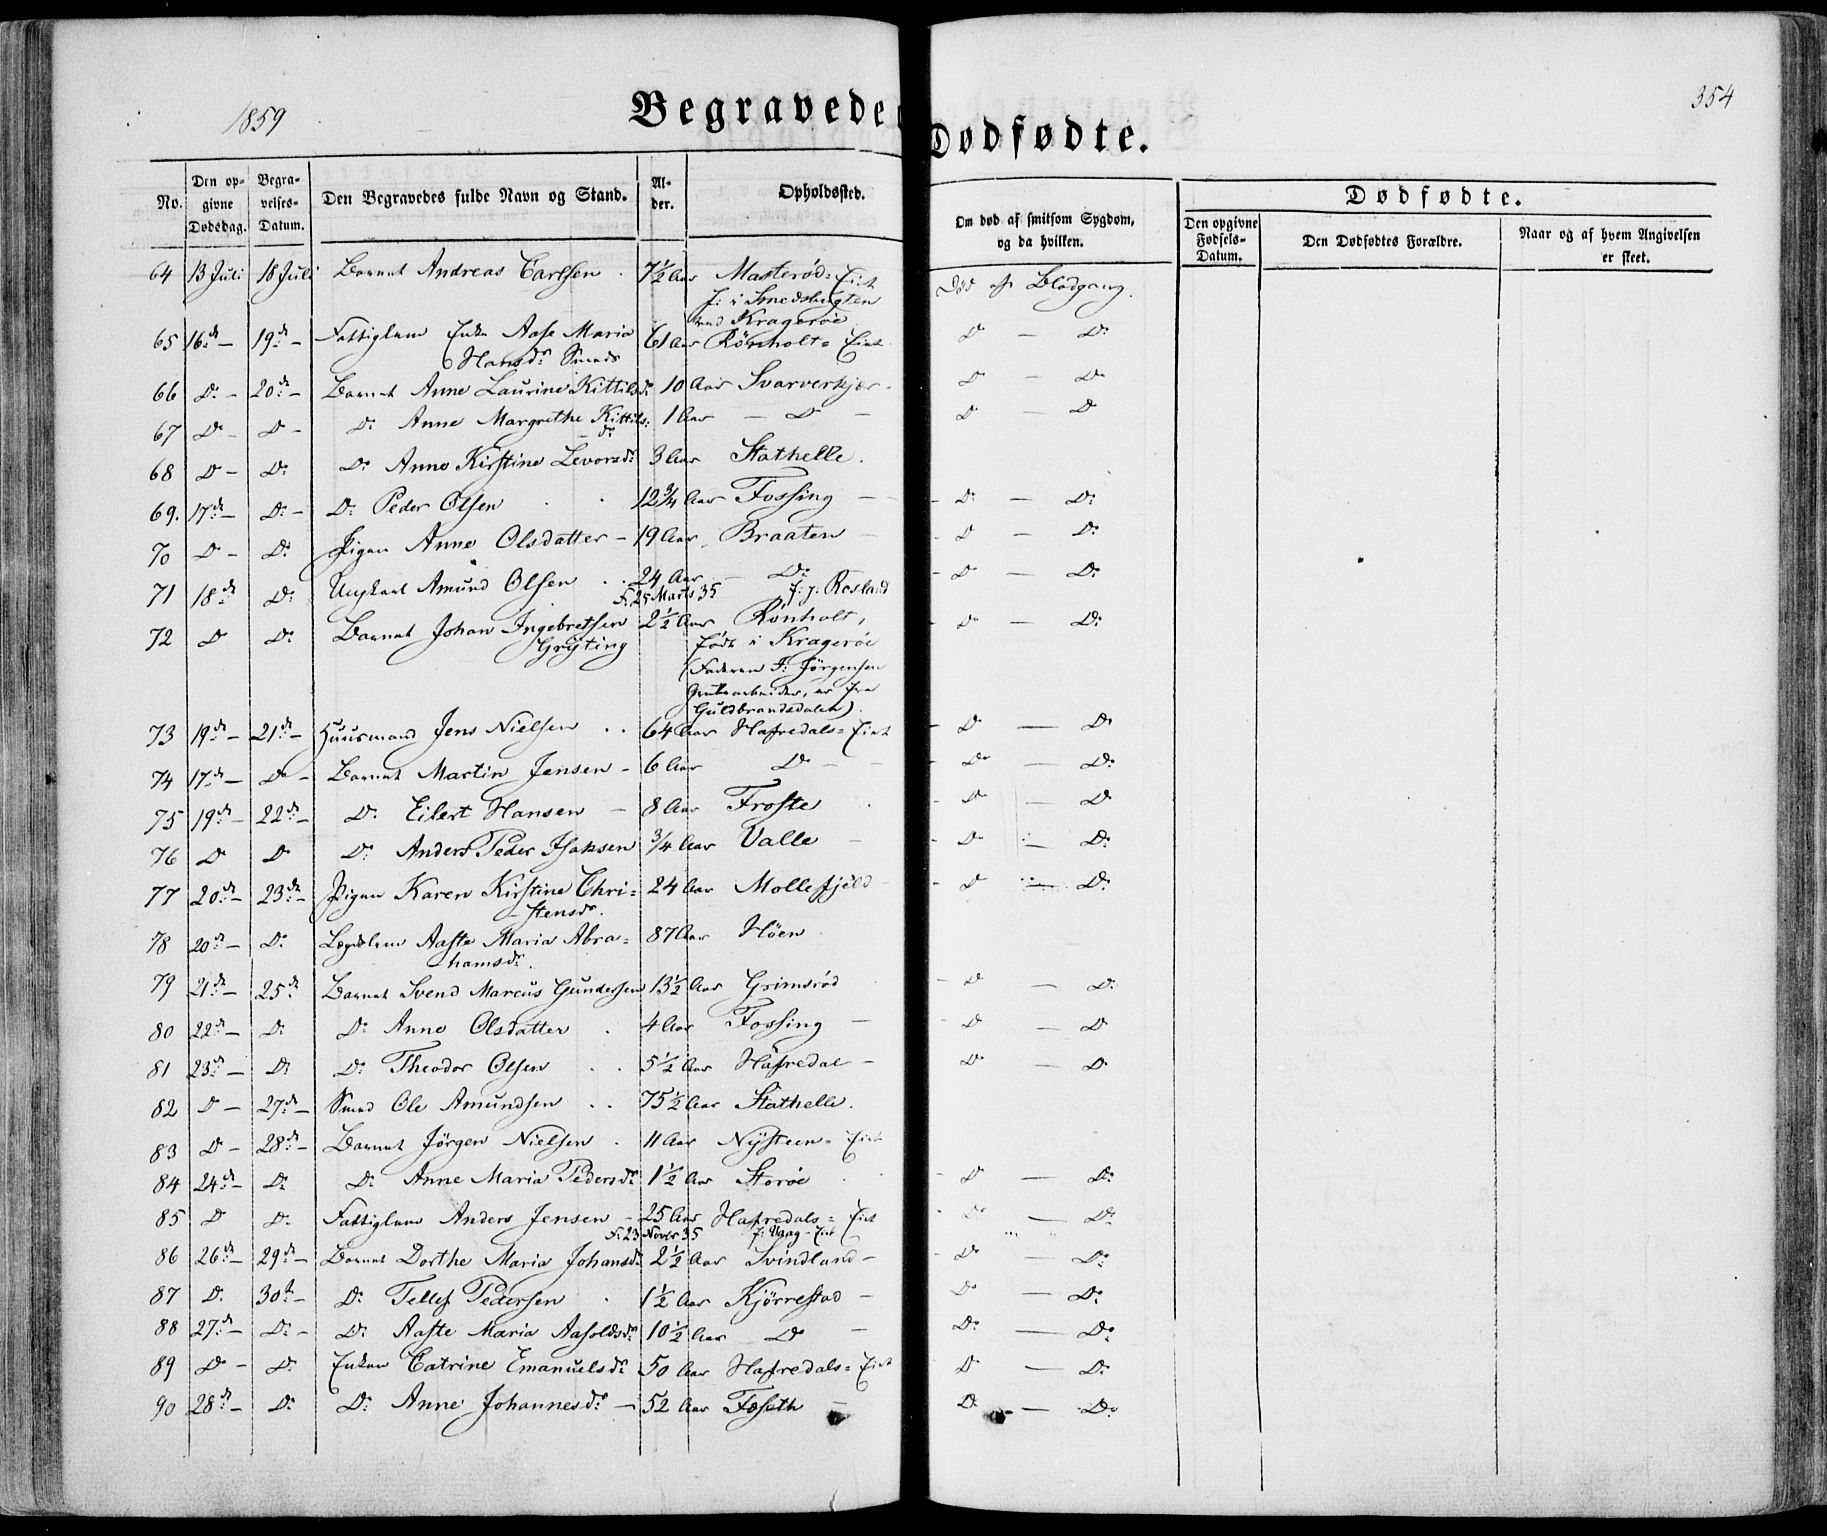 1859
354
Begravede
Dødfødte.
No.
Den opgivne Dødsdag.
Begravelses-Datum.
Den Begravedes fulde Navn og Stand.
Alder.
Opholdssted.
Om død af smitsom Sygdom, og da hvilken.
Dødfødte.
Den opgivne Fødsels-Datum.
Den Dødfødtes Forældre.
Naar og af hvem Angivelsen er skeet.
64 13 Juli 18 Juli Barnet Andreas Carlsen 7½ Aar Masterød= Eiet Død af Blodgang.
f: i Smedsbugten
ved Kragerøe
65 16de — 19de — Fattiglem Enke Aase Maria 61 Aar Rönholt= Eiet D° — D°
Hansdr Smeds
66 D° — 20de — Barnet Anne Laurine Kittilsdr 10 Aar Svarverkjær D° — D°
67 D° — D° — D° Anne Margrethe Kittils: 1 Aar — D° — D° — D°
dr
68 D° — D° D° Anne Kirstine Levorsdr 3 Aar Stathelle.
69. 17de — D° — D° Peder Olsen 12¾ Aar Fossing — D° — D°
70 D° — D° Pigen Anne Olsdatter — 19 Aar Braaten — D° — D°
71 18de D° Ungkarl Amund Olsen 24 Aar — D° — D° — D°
F. 25 Marts 35 f. p. Rosland
72 D° D° Barnet Johan Ingebretsen 2½ Aar Rönholt, D° — D°
Gryting født i Kragerøe
(Faderen F: Jörgensen
Grubearbeider, er fra
Guldbrandsdalen).
73 19de — 21de — Huusmand Jens Nielsen 64 Aar Hafredals= Eiet D° — D°
74 17de — D° — Barnet Martin Jensen — 6 Aar D° — D° — D°
75 19de — 22de — D° Eilert Hansen — 8 Aar Froste D° — D°
76 D° D° D° Anders Peder Isaksen ¾ Aar Valle — D° — D°
77 20de — 23de — Pigen Karen Kirstine Chri= 24 Aar Mollefjeld — D° — D°
stensdr.
78 20de — D° Lægdslem Aaste Maria Abra= 87 Aar Höen
hamsdr.
79 21de — 25de Barnet Svend Marcus Gundersen 13½ Aar Grimsrød D° — D°
80 22de — D° D° Anne Olsdatter 4 Aar Fossing — D° — D°
81 23de — D° D° Theodor Olsen 5½ Aar Hafredal — D° — D°
82 D° — 27de — Smed Ole Amundsen 75½ Aar Stathelle.
83 D° — 28de — Barnet Jörgen Nielsen 11 Aar Nysteen= Eiet
84 24de — D° D° Anne Maria Pedersdr 1½ Aar Storöe D° — D°
85 D° D° Fattiglem Anders Jensen — 25 Aar Hafredals= Eiet D° — D°
F. 23 Novbr 35 f: Vaag= Eiet
86 26de — 29de — Barnet Dorthe Maria Johansdr 2½ Aar Svindland — D° — D°
87 D° 30te — D° Tellef Pedersen 1½ Aar Kjörrestad — D° — D°
88 27de — D° — D° Aaste Maria Aasoldsdr 10½ Aar D° — D° — D°
89 D° — D° Enken Catrine Emanuelsdr 50 Aar Hafredals= Eiet D° — D°
90 28de — D° D° Anne Johannesdr — 52 Aar Foseth — D° — D°